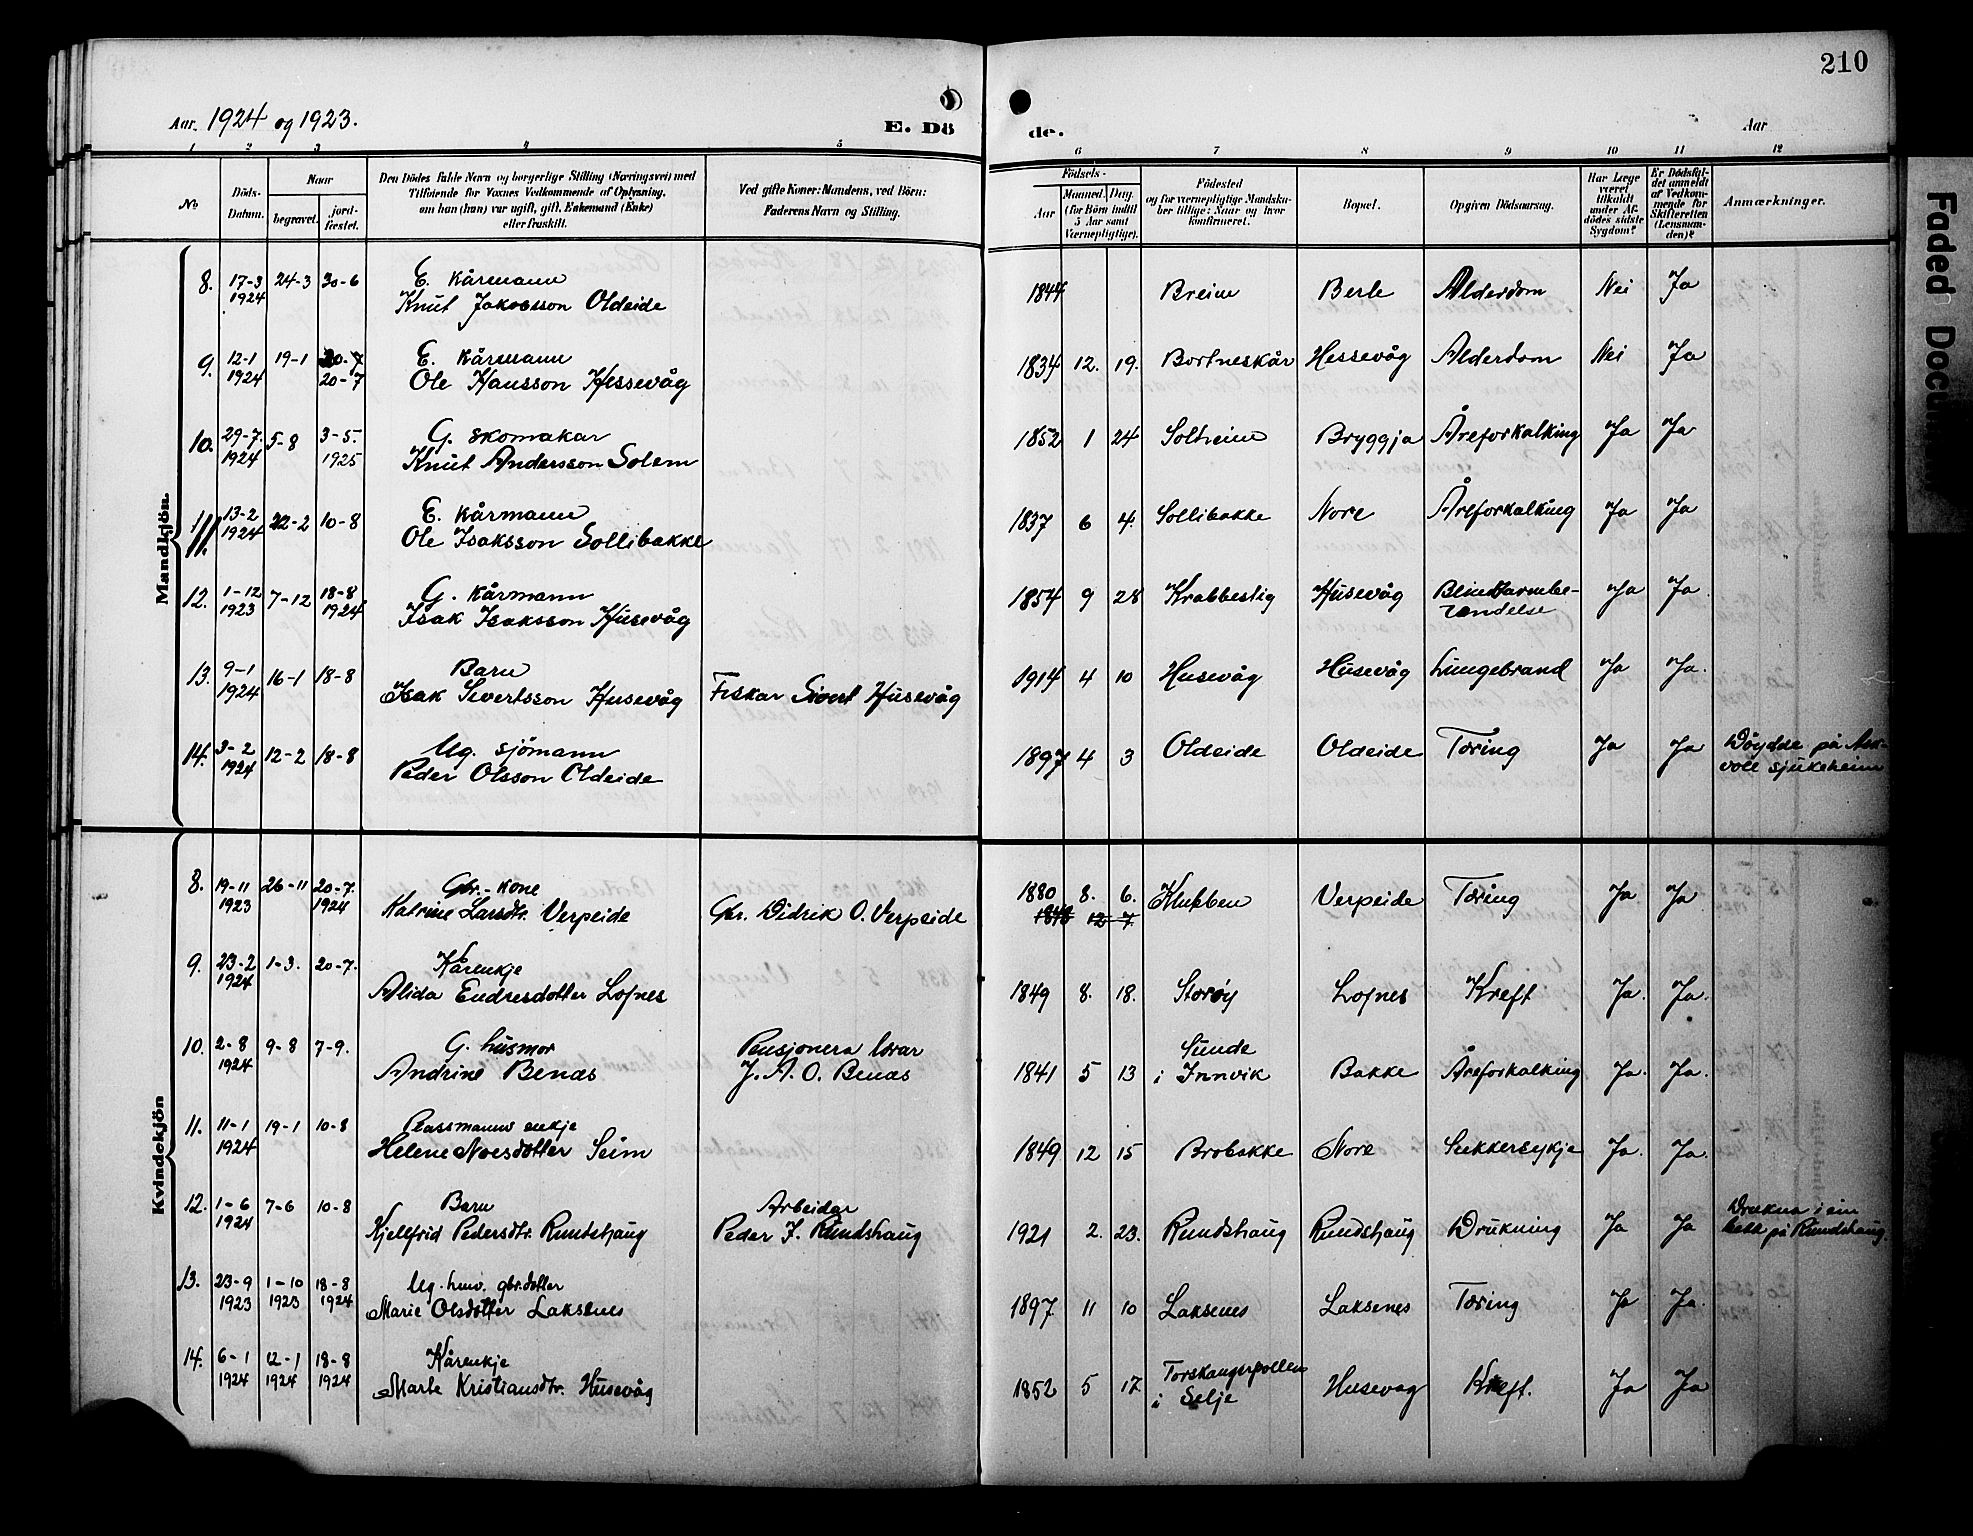 210
Aar. 1924 og 1923.
E. Dö
de.
Aar
1 2 3 4 5
6 7 8 9 10 11 12
No
Döds-Datum.
Naar
begravet. jord-fæstet.
Den Dödes fulde Navn og borgerlige Stilling (Næringsvei) med
Tilföiende for Voxnes Vedkommende af Oplysning,
om han (hun) var ugift, gift, Enkemand (Enke)
eller fraskilt.
Ved gifte Koner: Mandens, ved Börn:
Faderens Navn og Stilling.
Födsels-
Aar
Maaned. Dag.
(for Börn indtil
5 Aar samt
Værnepligtige).
Födested
og for værnepligtige Mandska-
ber tillige: Naar og hvor
konfirmeret.
Bopæl.
Opgiven Dödsaarsag.
Har Læge
været
tilkaldt
under Af-
dödes sidste
Sygdom?
Er Dödsfal-
det anmeldt
af Vedkom-
mende for
Skifteretten
(Lensman-
den)?
Anmærkninger.
Mandkjön.
8. 17-3 1924 24-3 20-6 E. Kårmann
Knut Jakobsson Oldeide 1844 Breim Berle Alderdom Nei Ja
9. 12-1 1924 19-1 20-7 20-7 E. Kårmann
Ole Hansson Hessevåg 1834 12. 19. Bortneskår Hessevåg Alderdom Nei Ja
10. 29-7. 1924 5-8 3-5. 1925 G. skomakar
Knut Andersson Solem 1852 1 24 Solheim Bryggja Åreforkalking Ja Ja
11. 13-2 1924 22-2 10-8 E. Kårmann
Ole Isaksson Sollibakke 1837 6 4. Sollibakke Nore Åreforkalking Ja Ja
12. 1-12 1923 7-12 18-8 1924 G. Kårmann
Isak Isaksson Husevåg 1854 9 28 Krabbestig Husevåg Blindtarmbe-
tændelse Ja Ja
13. 9-1 1924 16-1 18-8 Barn
Isak Sivertsson Husevåg Fiskar Sivert Husevåg 1914 4 10 Husevåg Husevåg Lungebrand Ja Ja.
14. 3-2 1924 12-2 18-8 Ug. sjömann
Peder Olsson Oldeide 1897 4 3 Oldeide Oldeide Tæring Ja Ja Döydde på Ask-
voll sjukeheim
Kvindekjön
8. 19-11 1923 26-11 20-7. 1924 Gbr.-kone
Katrine Larsdtr. Verpeide Gbr. Didrik O. Verpeide 1880 8. 6. Klubben Verpeide Tæring Ja Ja
1848 12 7.
9. 23-2 1924 1-3. 20-7. Kårenkje
Alida Endresdotter Lofnes 1849 8. 18. Storøy Lofnes Kreft Ja. Ja.
10. 2-8 1924 9-8 7-9. G. husmor
Andrine Benæs Pensjonera lærar
J. A. O. Benæs 1841 5 13 Sunde
i Innvik Bakke Åreforkalking Ja. Ja.
11. 11-1 1924 19-1 10-8 Plassmanns enkje
Helene Moesdotter Seim 1849 12 15 Brobakke Nore Sukkersykje Ja. Ja.
12. 1-6 1924 7-6 10-8 Barn
Kjellfrid Pedersdtr. Rundehaug Arbeidar
Peder J. Rundshaug 1921 2. 23. Rundshaug Rundshaug Drukning Ja Ja Drukna i ein
bekk på Rundehaug
13. 23-9 1923 1-10 1923 18-8 1924 Ug. husv. gbr.dotter
Marie Olsdotter Laksenes 1897 11 10 Laksenes Laksenes Tæring Ja Ja.
14. 6-1 1924 12-1 1924 18-8 1924 Kårenkje
Marte Kristiansdtr. Husevåg 1852 5 17 Torskangerpollen
i Selje Husevåg Kreft. Ja Ja
Faded Docu